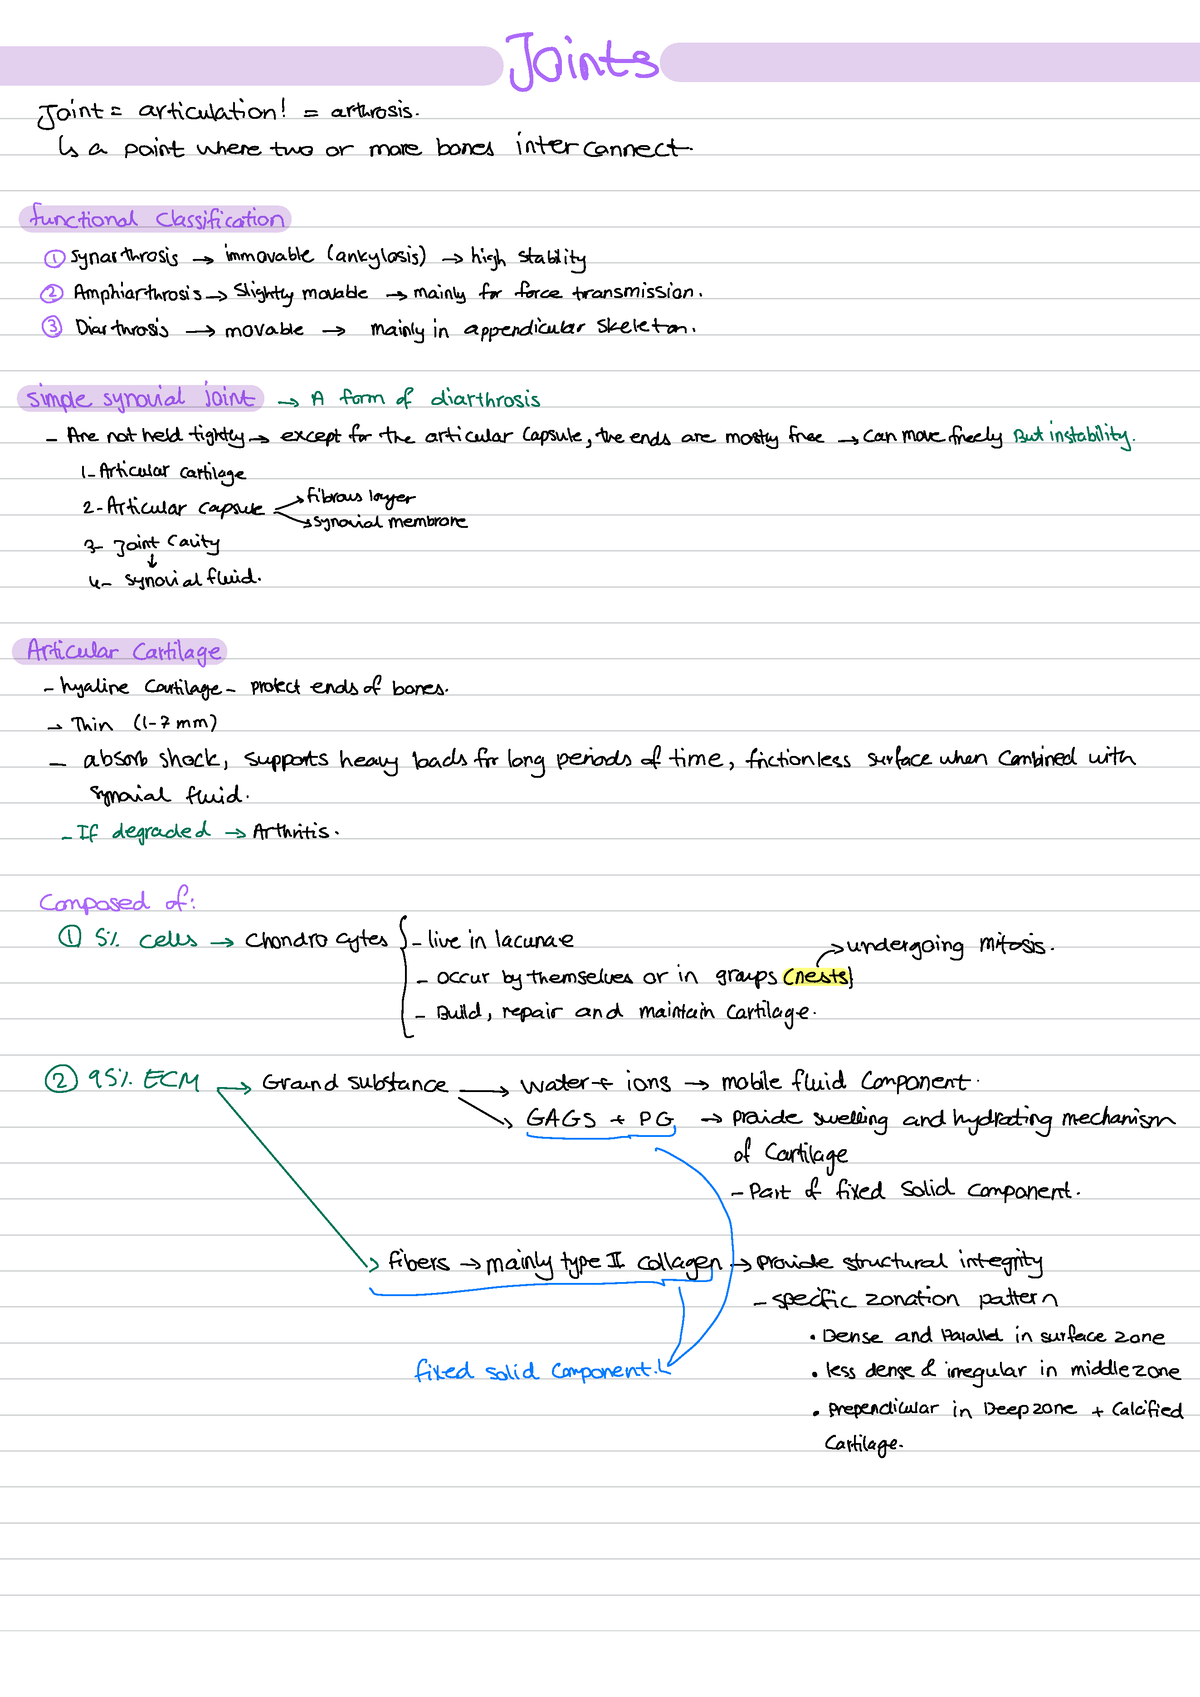 Joints
Joint = articulation! = arthrosis.
Is a point where two or more bones interconnect.
functional classification
① Synarthrosis → immovable (ankylosis) → high stability
② Amphiarthrosis → Slightly movable → mainly for force transmission.
③ Diarthrosis → movable → mainly in appendicular skeleton.
simple synovial joint → A form of diarthrosis
- Are not held tightly → except for the articular capsule, the ends are mostly free → can move freely But instability.
1- Articular cartilage
2- Articular capsule → fibrous layer
→ synovial membrane
3- Joint Cavity
↓
4- synovial fluid.
Articular Cartilage
- hyaline Cartilage - protect ends of bones.
→ Thin (1-7 mm)
- absorb shock, supports heavy loads for long periods of time, frictionless surface when combined with
synovial fluid.
- If degraded → Arthritis.
Composed of:
① 5% cells → Chondrocytes { - live in lacunae
→ undergoing mitosis.
- occur by themselves or in groups (nests)
- Build, repair and maintain cartilage.
② 95% ECM → Ground substance → water + ions → mobile fluid component.
→ GAGS + PG → provide swelling and hydrating mechanism
of Cartilage
- Part of fixed solid component.
→ fibers → mainly type II collagen → provide structural integrity
- specific zonation pattern
• Dense and Parallel in surface zone
fixed solid component.
• less dense & irregular in middle zone
• Prependicular in Deep zone + Calcified
Cartilage.